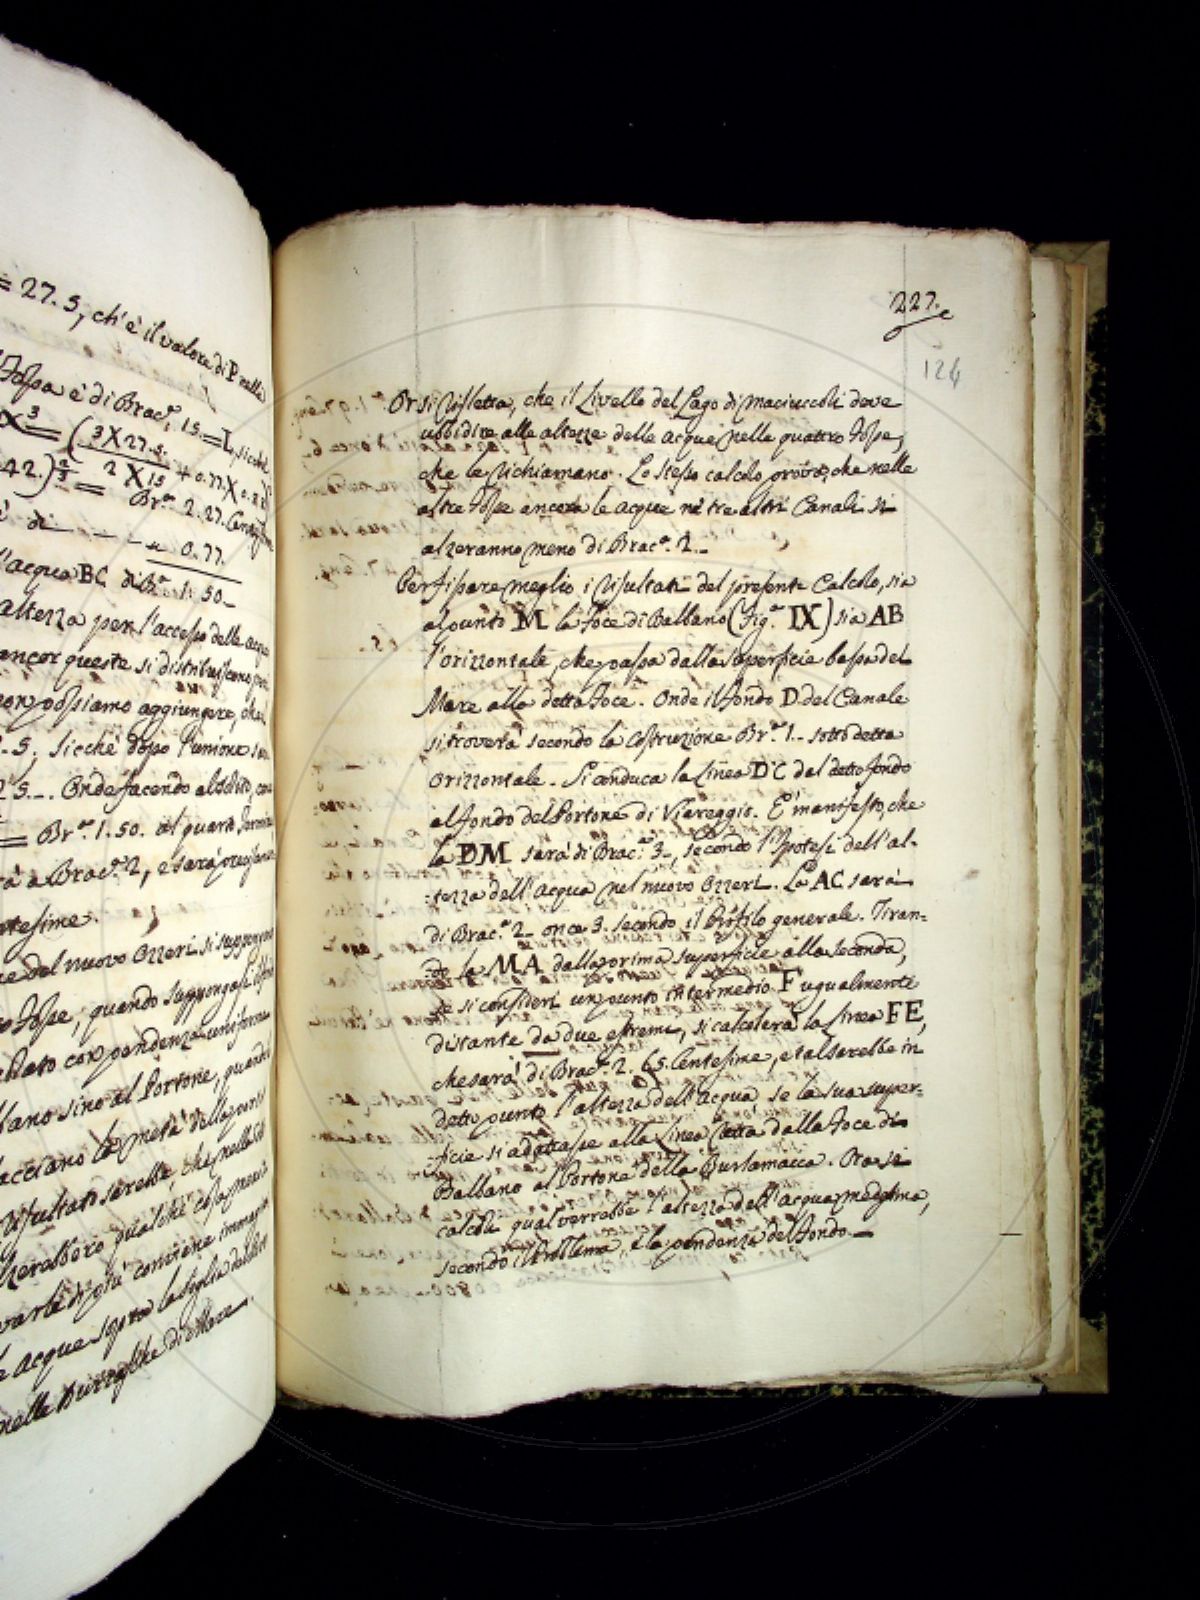 = 27. 5, ch'è il valore di P nella
Fossa è di Brac.ª 15. = L, sicchè
X³ = (3X27.5. / 2X15 + 0.77X0.
42.)⅔ = Br.ª 2. 27. Centesime
di - - - 0. 77.
l'acqua BC di Br.ª 1. 50._
altezza per l'accesso delle acque
ancor queste si distribuiscano per
non possiamo aggiungere, che
. 5; sicchè dopo l'unione
25._. Onde facendo al solito,
= Br.ª 1. 50. al quarto
à a Brac.ª 2, e sarà
ntesime.
del nuovo Ozzeri si suppongono
Fosse, quando suppongasi
con pendenza uniforme
lano sino al Portone, quando
facciano la metà della
risultato sarebbe, che nella
zerebbero qualche cosa meno
di più conviene
acque sopra la soglia
nelle Burrasche di Mare.
227.
124
Or si rifletta, che il Livello del Lago di Maciuccoli deve
ubbidire alle altezze delle acque nelle quattro Fosse,
che le richiamano. Lo stesso calcolo prova, che nelle
altre Fosse ancora le acque ne' tre altri Canali si
alzeranno meno di Brac.ª 2._
Per fissare meglio i risultati del presente Calcolo, sia
al punto M la Foce di Balbano (Fig.ª IX) sia AB
l'orizzontale, che passa dalla superficie bassa del
Mare alla detta Foce. Onde il fondo D del Canale
si troverà secondo la Costruzione Br.ª 1._ sotto detta
Orizzontale. Si conduca la Linea DC dal detto fondo
al fondo del Portone di Viareggio. E' manifesto, che
la DM sarà di Brac.ª 3_, secondo l'Ipotesi dell'al-
:tezza dell'acqua nel nuovo Ozzeri. La AC sarà
di Brac.ª 2_ once 3. secondo il Profilo generale. Tiran-
:do la MA dalla prima superficie alla seconda,
se si consideri un punto intermedio F ugualmente
distante da due estremi, si calcolerà la Linea FE,
che sarà di Brac.ª 2. 65. Centesime, e tal sarebbe in
detto punto l'altezza dell'acqua se la sua super-
:ficie si adattasse alla Linea retta dalla Foce di
Balbano al Portone della Burlamacca. Ora si
calcoli qual verrebbe l'altezza dell'acqua medesima,
secondo il Problema, e la pendenza del fondo._